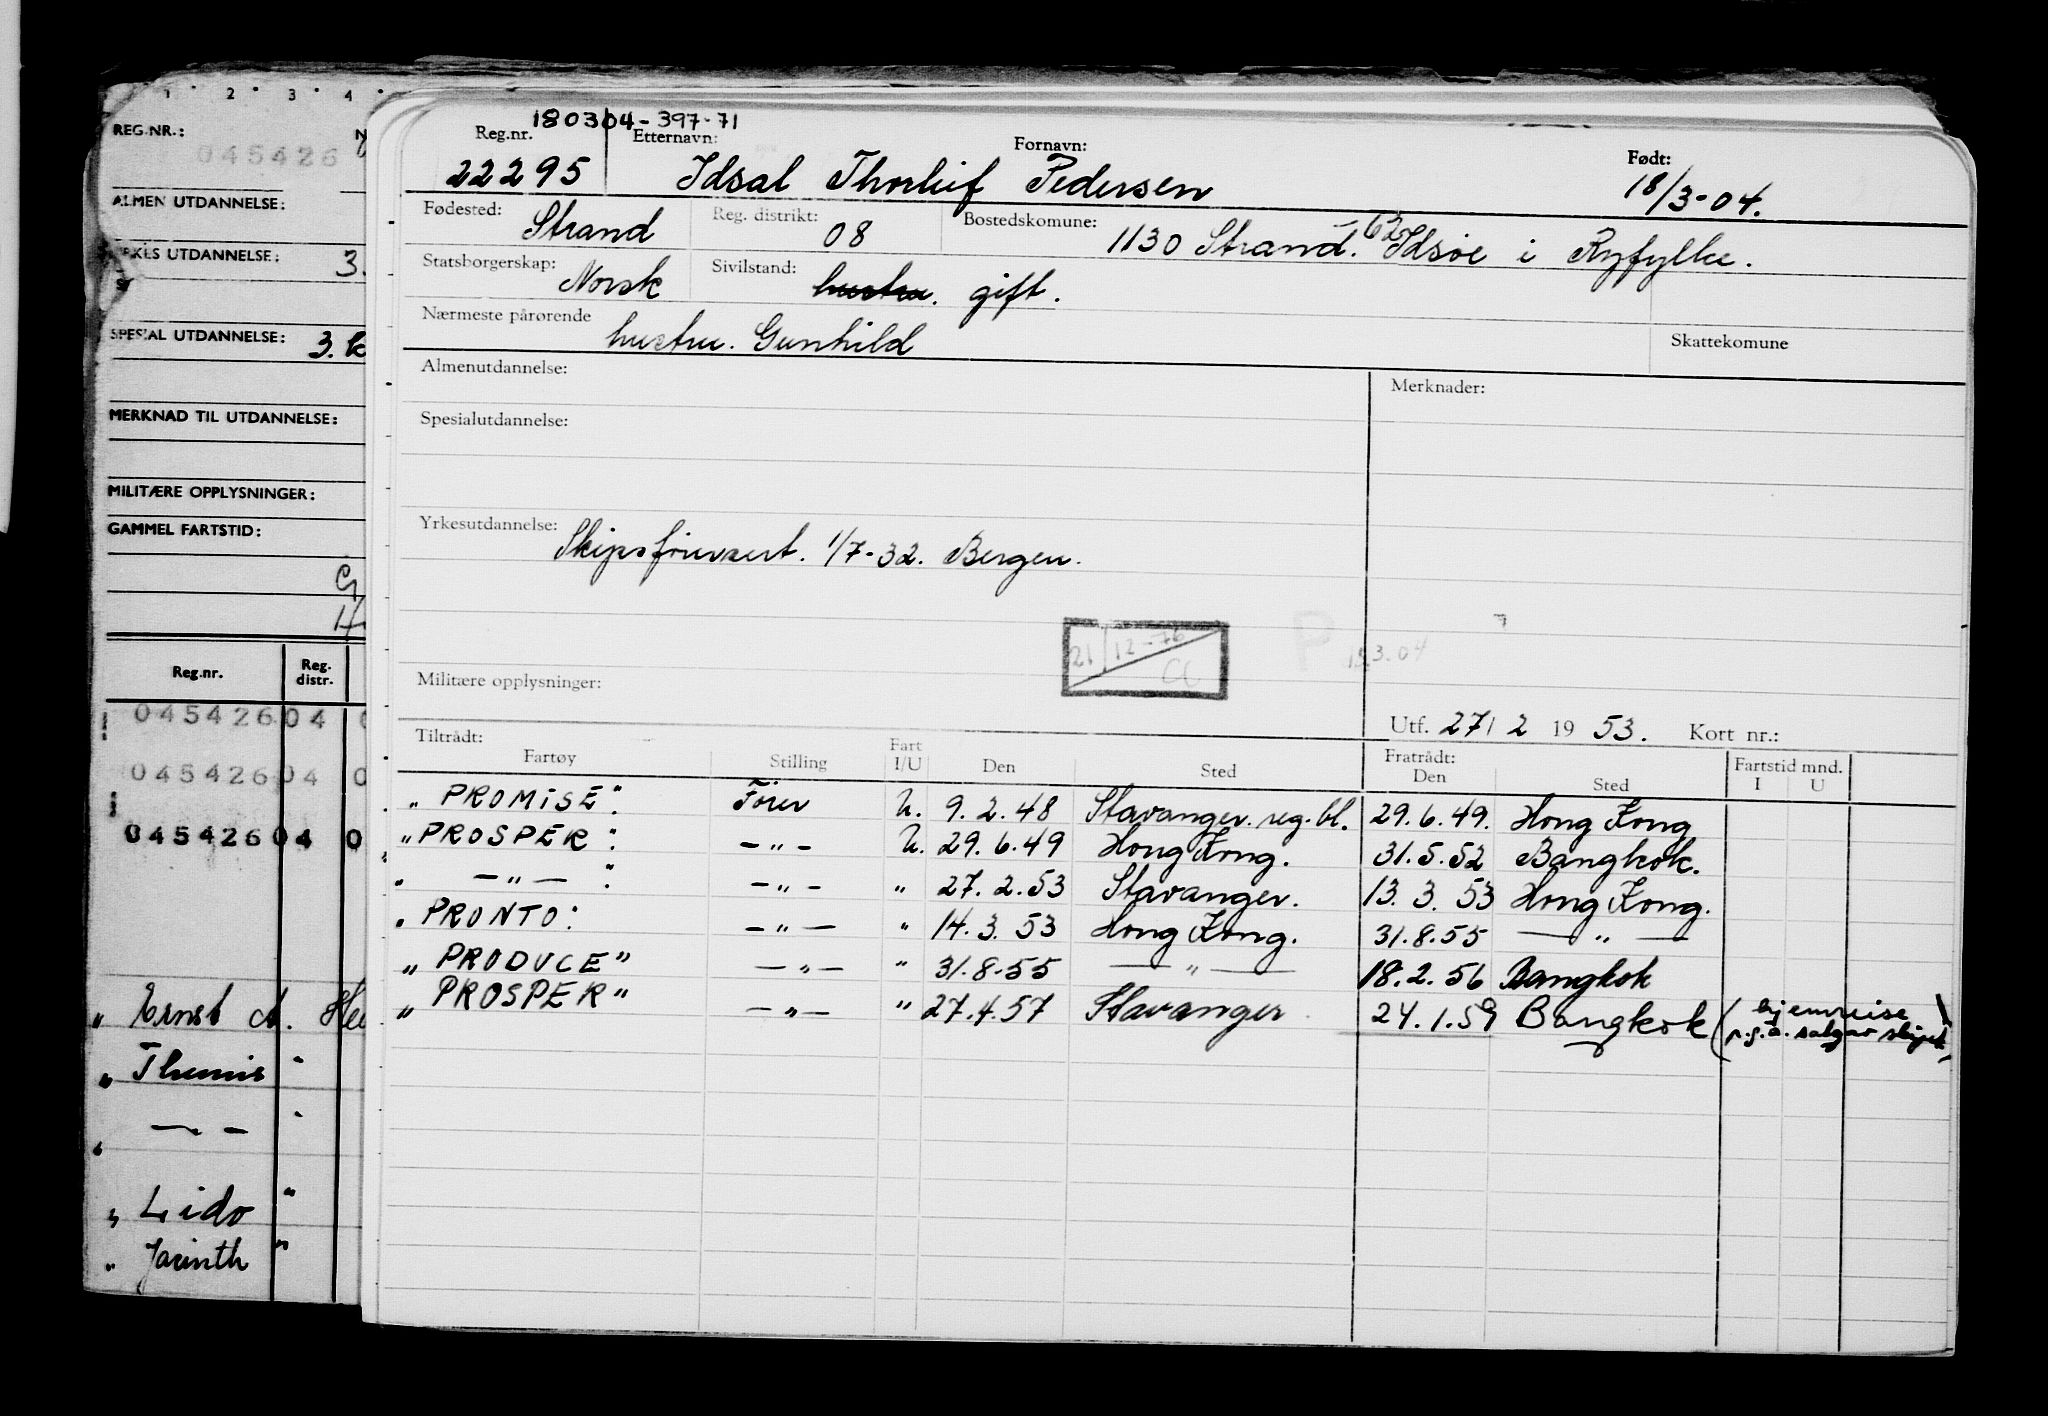 1 2 3 4
REG.NR.:
045426
ALMEN UTDANNELSE:
UTDANNELSE: 3.
SPESIAL UTDANNELSE: 3. k
MERKNAD TIL UTDANNELSE:
MILITÆRE OPPLYSNINGER:
GAMMEL FARTSTID:
Reg.nr. Reg. distr.
045426 04 0
045426 04 0
045426 04 0
" Ernst A.
" Themis "
" — " — "
" Lido "
" Jacinth "
180304-397-71
Reg.nr. Etternavn: Fornavn: Født:
22295 Idsal Thorleif Pedersen 18/3-04.
Fødested: Strand Reg. distrikt: 08 Bostedskomune: 1130 Strand. 62 Idsøe i Ryfylke.
Statsborgerskap: Norsk Sivilstand: hustru. gift.
Nærmeste pårørende hustru. Gunhild Skattekomune
Almenutdannelse: Merknader:
Spesialutdannelse:
Yrkesutdannelse: Skipsførersert. 1/7-32. Bergen.
21/12-76
P 18.3.04
Militære opplysninger:
Utf. 27/2 1953. Kort nr.:
Tiltrådt: Fratrådt: Fartstid mnd.
Fartøy Stilling Fart I/U Den Sted Den Sted I U
" PROMISE". Fører U. 9.2.48 Stavanger. reg. bl. 29.6.49. Hong Kong
" PROSPER": — " — U. 29.6.49 Hong Kong. 31.5.52 Bangkok.
" — " — ": — " — " 27.2.53 Stavanger. 13.3.53 Hong Kong.
" PRONTO: — " — " 14.3.53 Hong Kong. 31.8.55 — " —
" PRODUCE" — " — " 31.8.55 — " — 18.2.56 Bangkok
" PROSPER" — " — " 27.4.57 Stavanger 24.1.59 Bangkok (hjemreise
p.g.a. salg av skipet)